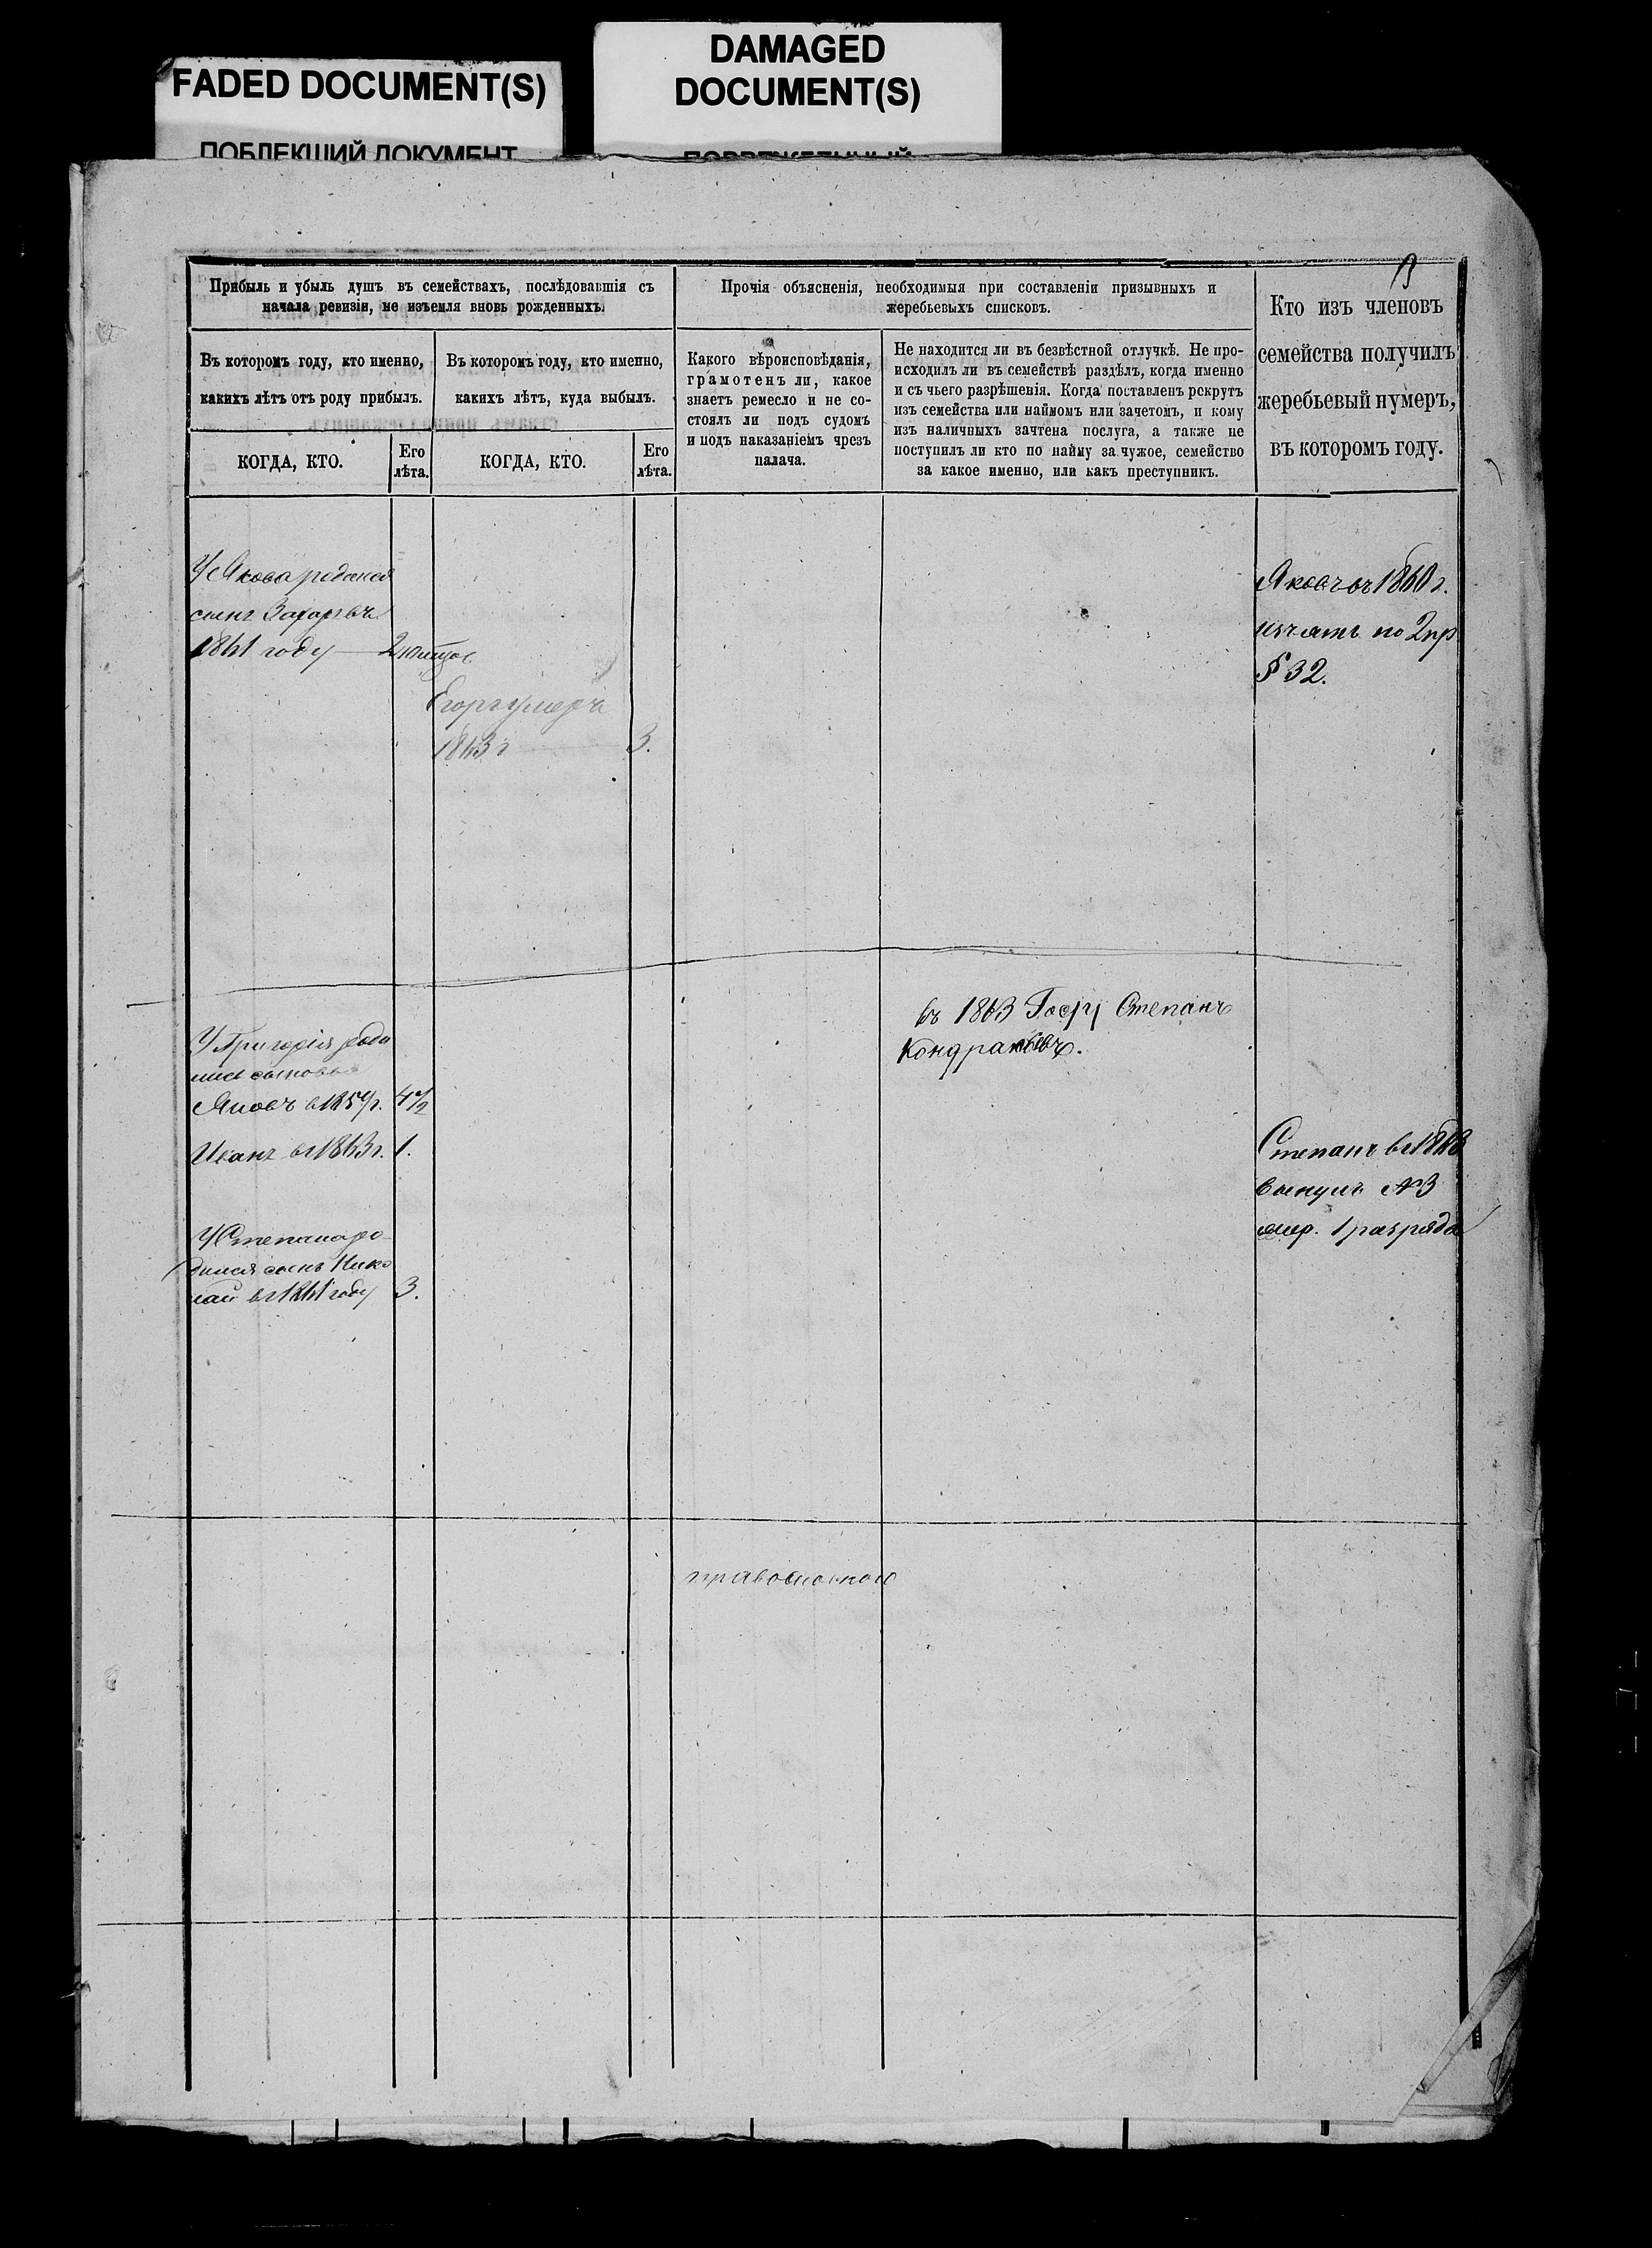 FADED DOCUMENT(S)
DAMAGED
DOCUMENT(S)
ПОБЛЕКШИЙ ДОКУМЕНТ
Прибыль и убыль душъ въ семействахъ, послѣдовавшія съ
начала ревизіи, не изъемля вновь рожденныхъ.
Въ которомъ году, кто именно,
какихъ лѣтъ отъ роду прибылъ.
КОГДА, КТО.
Его
лѣта.
Въ которомъ году, кто именно,
какихъ лѣтъ, куда выбылъ.
КОГДА, КТО.
Его
лѣта.
Прочія объясненія, необходимыя при составленіи призывныхъ и
жеребьевыхъ списковъ.
Какого вѣроисповѣданія,
грамотенъ ли, какое
знаетъ ремесло и не со-
стоялъ ли подъ судомъ
и подъ наказаніемъ чрезъ
палача.
Не находится ли въ безвѣстной отлучкѣ. Не про-
исходилъ ли въ семействѣ раздѣлъ, когда именно
и съ чьего разрѣшенія. Когда поставленъ рекрутъ
изъ семейства или наймомъ или зачетомъ, и кому
изъ наличныхъ зачтена послуга, а также не
поступилъ ли кто по найму за чужое, семейство
за какое именно, или какъ преступникъ.
Кто изъ членовъ
семейства получилъ
жеребьевый нумеръ,
въ которомъ году.
У Якова родился
сынъ Захаръ въ
1861 году 2
Егоръ умеръ
1863 г 3.
Яковъ въ 1860 г.
изъятъ по 2 пр
§ 32.
въ 1863 Году Степанъ
Кондратьевъ.
У Григорія роди
лись сыновья
Яковъ в 1859 г. 4 1/2
Иванъ въ 1863 г. 1.
У Степана ро-
дился сынъ Нико
лай въ 1861 году 3.
Степанъ въ 1863
вынулъ № 3
1 разряда
православнаго